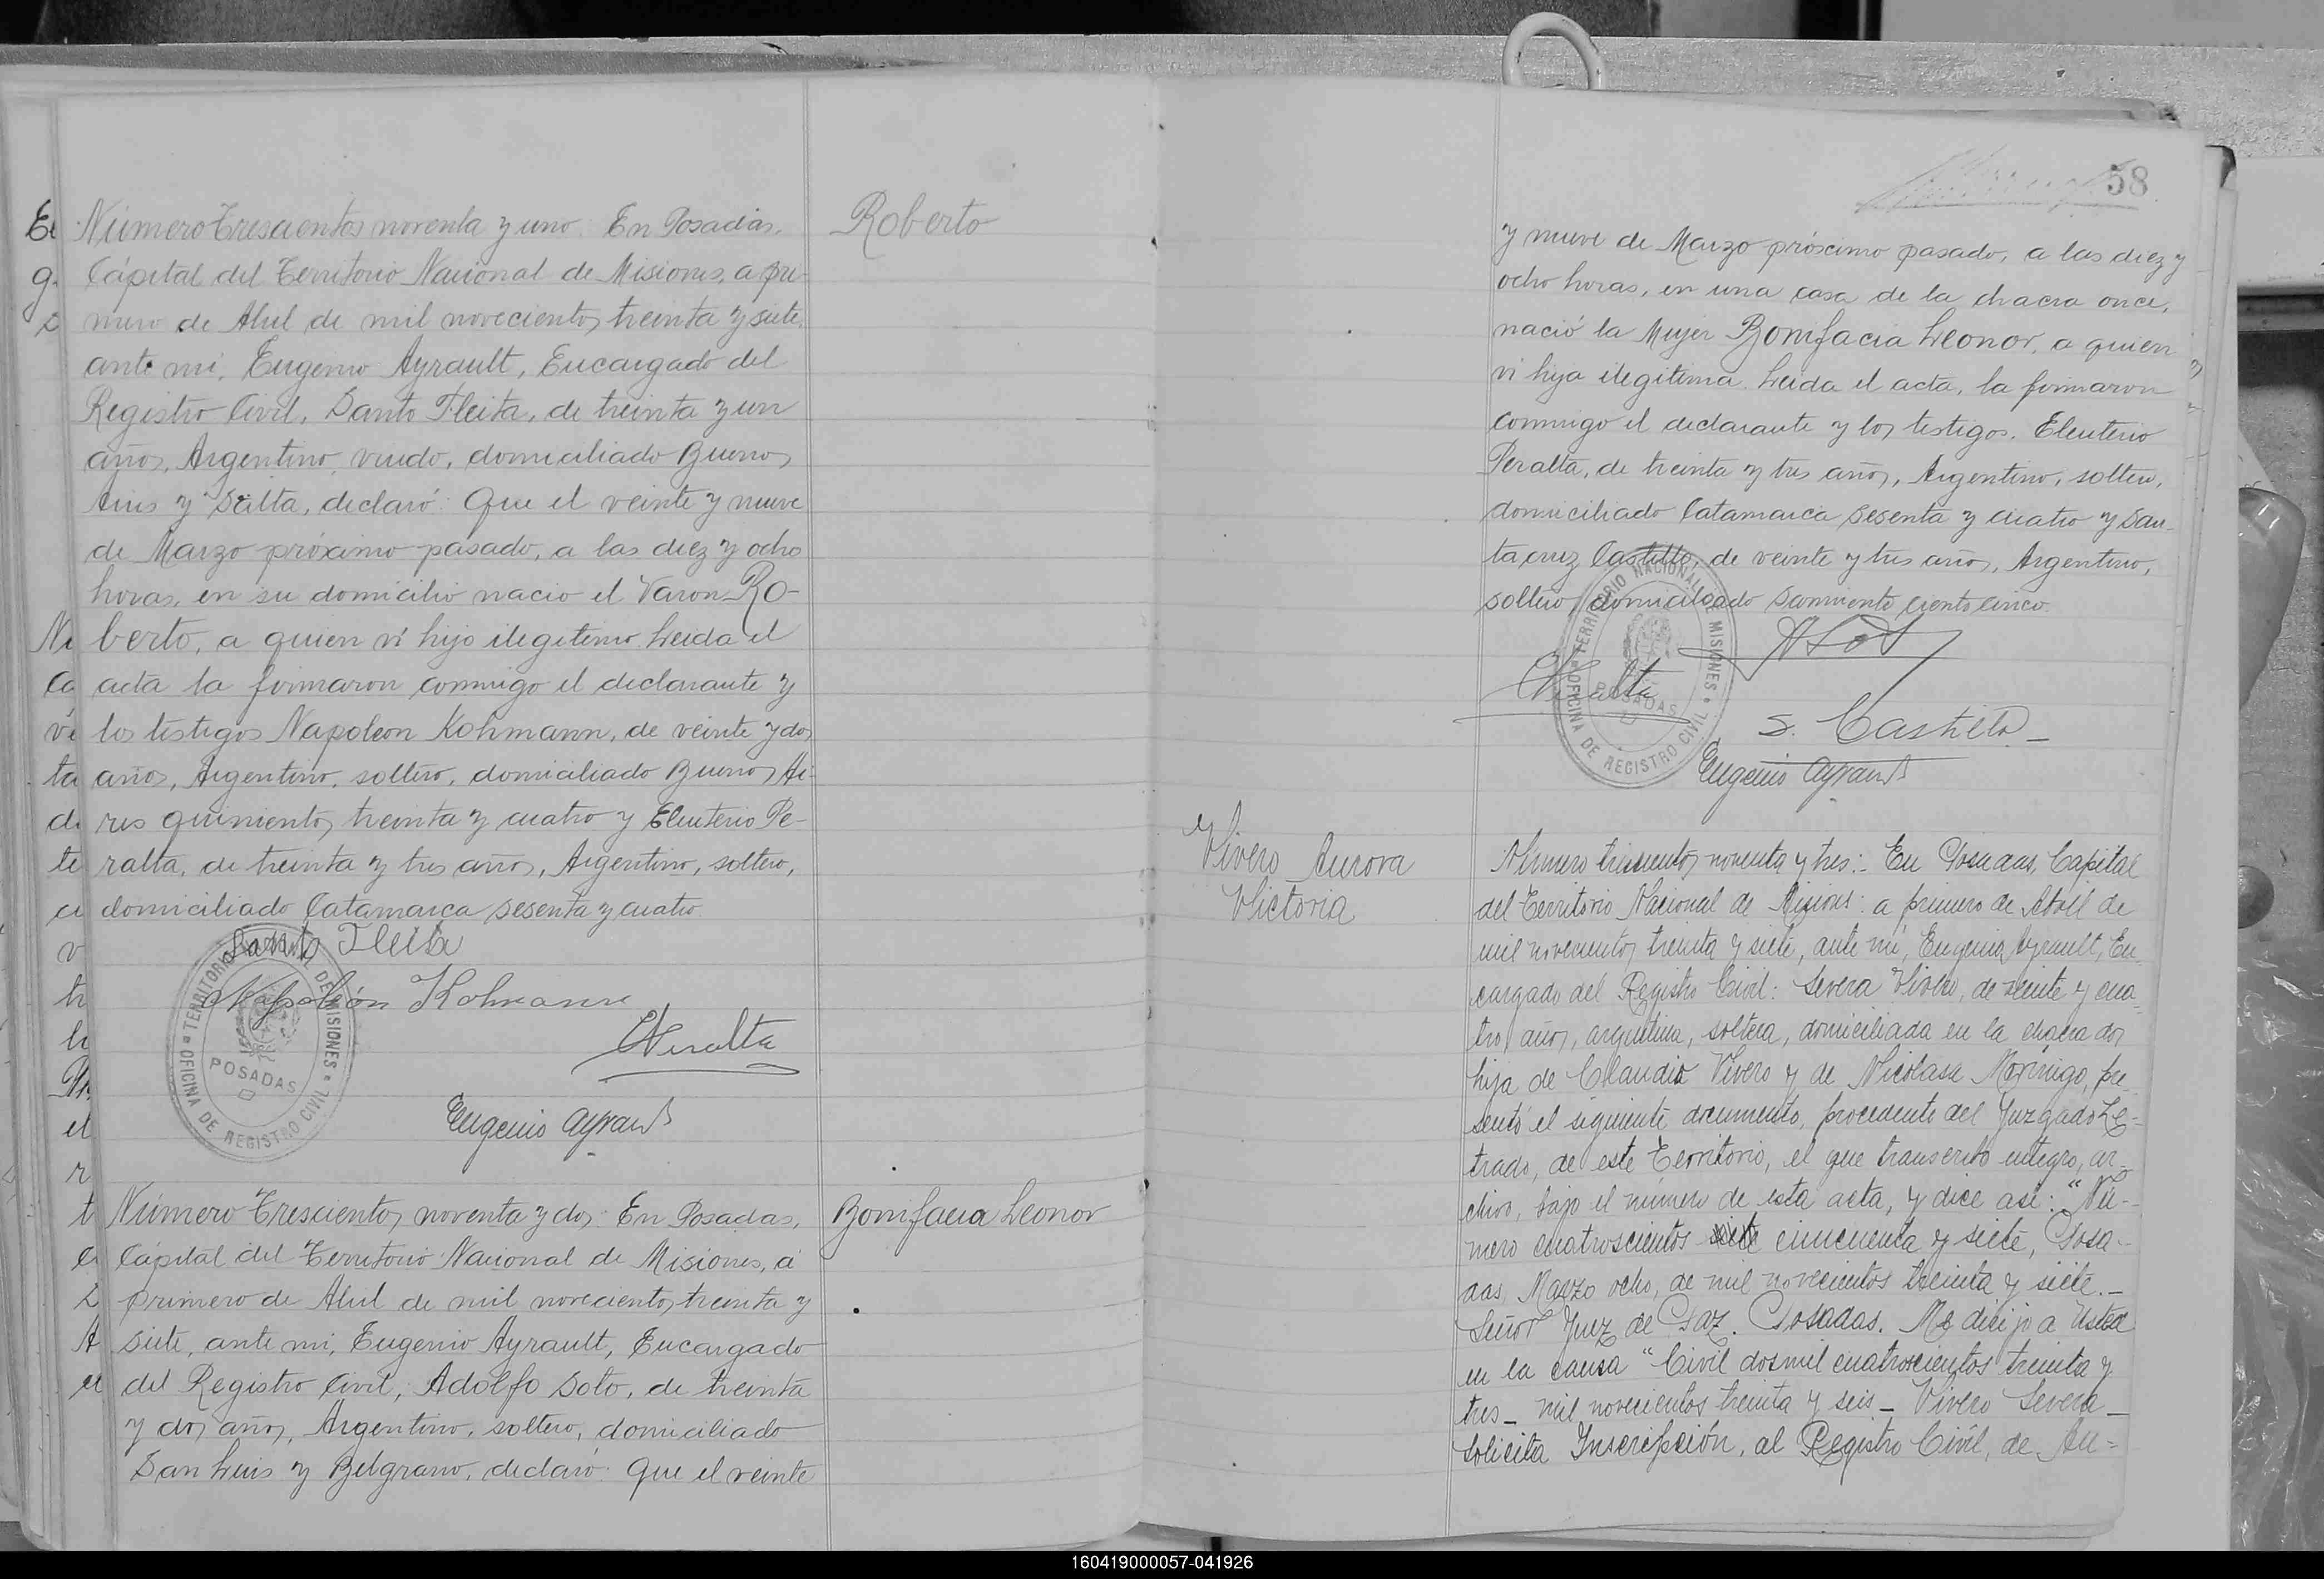 Roberto
Número Trescientos noventa y uno. En Posadas,
Cápital del Territorio Nacional de Misiones, a pri-
mero de Abril de mil novecientos treinta y siete,
ante mi, Eugenio Ayrault, Encargado del
Registro Civil, Santo Fleita, de treinta y un
años, Argentino, viudo, domiciliado Buenos
Aires y Salta, declaró: Que el veinte y nueve
de Marzo próximo pasado, a las diez y ocho
horas, en su domicilio nacio el Varon Ro-
berto, a quien vi hijo ilegitimo. Leida el
acta la firmaron conmigo el declarante y
los testigos Napoleon Kohmann, de veinte y dos
años, Argentino, soltero, domiciliado Buenos Ai-
res quinientos treinta y cuatro y Eleuterio Pe-
ralta, de treinta y tres años, Argentino, soltero,
domiciliado Catamarca sesenta y cuatro.
Santo Fleita
Napoleón Kohmann
EPeralta
Eugenio Ayrault
TERRITORIO NACIONAL DE MISIONES
POSADAS
OFICINA DE REGISTRO CIVIL
Bonifacia Leonor
Número Trescientos noventa y dos. En Posadas,
Cápital del Territorio Nacional de Misiones, á
primero de Abril de mil novecientos treinta y
siete, ante mi, Eugenio Ayrault, Encargado
del Registro Civil, Adolfo Soto, de treinta
y dos años, Argentino, soltero, domiciliado
San Luis y Belgrano, declaró: Que el veinte
58
y nueve de Marzo próximo pasado, a las diez y
ocho horas, en una casa de la chacra once,
nació la Mujer Bonifacia Leonor, a quien
vi hija ilegitima. Leida el acta, la firmaron
conmigo el declarante y los testigos, Eleuterio
Peralta, de treinta y tres años, Argentino, soltero,
domiciliado Catamarca sesenta y cuatro y San-
ta cruz Castillo, de veinte y tres años, Argentino,
soltero, domiciliado Sarmiento ciento cinco.
ASoto
EPeralta
S. Castillo
Eugenio Ayrault
TERRITORIO NACIONAL DE MISIONES
POSADAS
OFICINA DE REGISTRO CIVIL
Vivero Aurora
Victoria
Número trescientos noventa y tres:- En Posadas, Capital
del Territorio Nacional de Misiones: a primero de Abril de
mil novecientos treinta y siete, ante mí, Eugenio Ayrault, En-
cargado del Registro Civil: Severa Vivero, de veinte y cua-
tro años, argentina, soltera, domiciliada en la chacra dos
hija de Claudio Vivero y de Nicolasa Morínigo, pre-
sentó el siguiente documento, procedente del Juzgado Le-
trado, de este Territorio, el que transcrito integro, ar-
chivo, bajo el número de esta acta, y dice así: "Nú-
mero cuatroscientos siete cincuenta y siete, Posa-
das, Marzo ocho, de mil novecientos treinta y siete.-
Señor Juez de Paz. Posadas. Me dirijo a Usted
en la causa "Civil dosmil cuatroscientos treinta y
tres - mil novecientos treinta y seis - Vivero Severa -
solicita Inscripción, al Registro Civil, de Au-
160419000057-041926